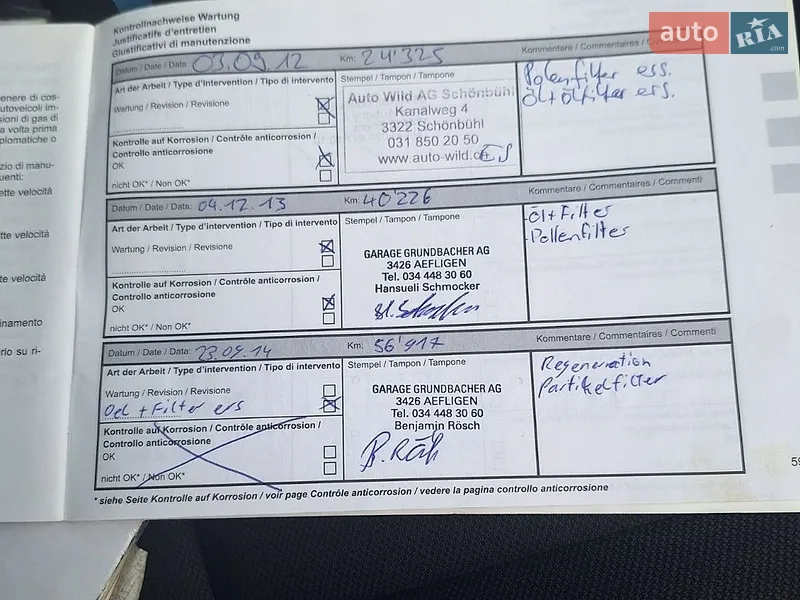 auto RIA .com
Kontrollnachweise Wartung
Justificatifs d'entretien
Giustificativi di manutenzione
Datum / Date / Data 03.09.12 Km: 24'325 Kommentare / Commentaires /
Art der Arbeit / Type d'intervention / Tipo di intervento Stempel / Tampon / Tampone
Wartung / Revision / Revisione
Kontrolle auf Korrosion / Contrôle anticorrosion /
Controllo anticorrosione
OK
nicht OK* / Non OK*
Auto Wild AG Schönbühl
Kanalweg 4
3322 Schönbühl
031 850 20 50
www.auto-wild.ch
Polenfilter ers.
Öl+Ölfilter ers.
Datum / Date / Data: 04.12.13 Km: 40'226 Kommentare / Commentaires / Commenti
Art der Arbeit / Type d'intervention / Tipo di intervento Stempel / Tampon / Tampone
Wartung / Revision / Revisione
Kontrolle auf Korrosion / Contrôle anticorrosion /
Controllo anticorrosione
OK
nicht OK* / Non OK*
GARAGE GRUNDBACHER AG
3426 AEFLIGEN
Tel. 034 448 30 60
Hansueli Schmocker
-Öl+Filter
-Pollenfilter
Datum / Date / Data: 23.09.14 Km: 56'917 Kommentare / Commentaires / Commenti
Art der Arbeit / Type d'intervention / Tipo di intervento Stempel / Tampon / Tampone
Wartung / Revision / Revisione
Oel + Filter ers
Kontrolle auf Korrosion / Contrôle anticorrosion /
Controllo anticorrosione
OK
nicht OK* / Non OK*
GARAGE GRUNDBACHER AG
3426 AEFLIGEN
Tel. 034 448 30 60
Benjamin Rösch
B. Rösch
Regeneration
Partikelfilter
* siehe Seite Kontrolle auf Korrosion / voir page Contrôle anticorrosion / vedere la pagina controllo anticorrosione
59
enere di cos-
utoveicoli im-
sioni di gas di
a volta prima
plomatiche o
zio di manu-
uenti:
ette velocità
tte velocità
te velocità
inamento
rio su ri-